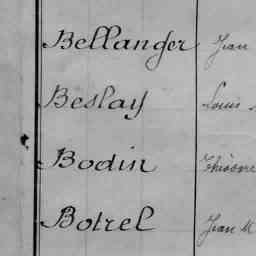 Bellanger Jean
Beslay Louis
Bodin
Botrel Jean M